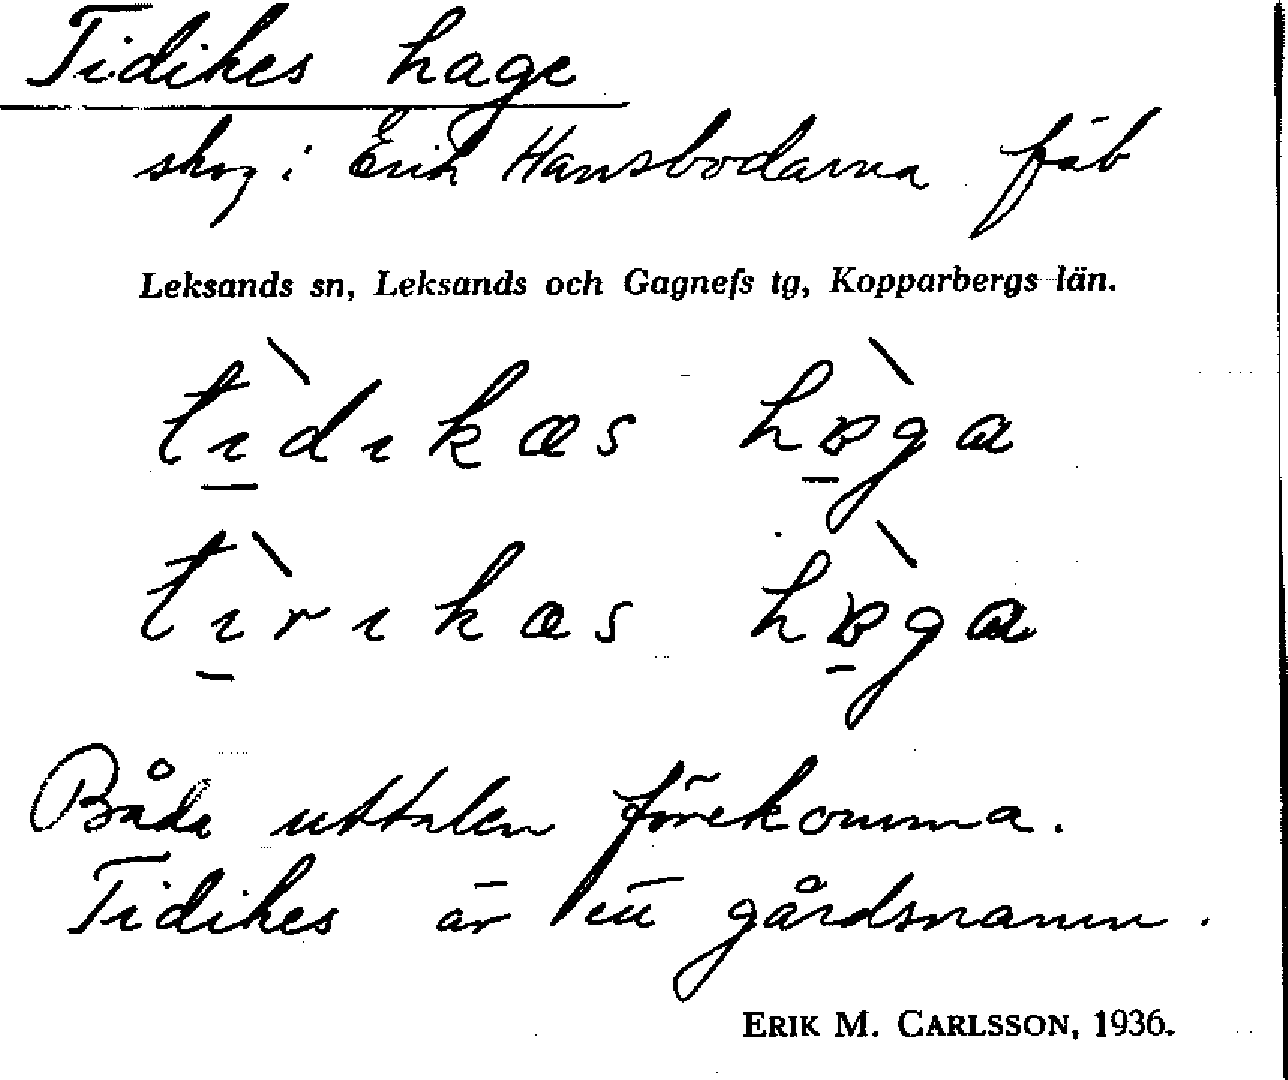 Tidikes hage
skog i Erik Hansbodarna fäb
Leksands sn, Leksands och Gagnefs tg, Kopparbergs län.
tı̱̀dıkæs hɒ̱̀ga
tı̱̀rıkæs hɒ̱̀ga
Båda uttalen förekomma.
Tidikes är ett gårdsnamn.
ERIK M. CARLSSON, 1936.